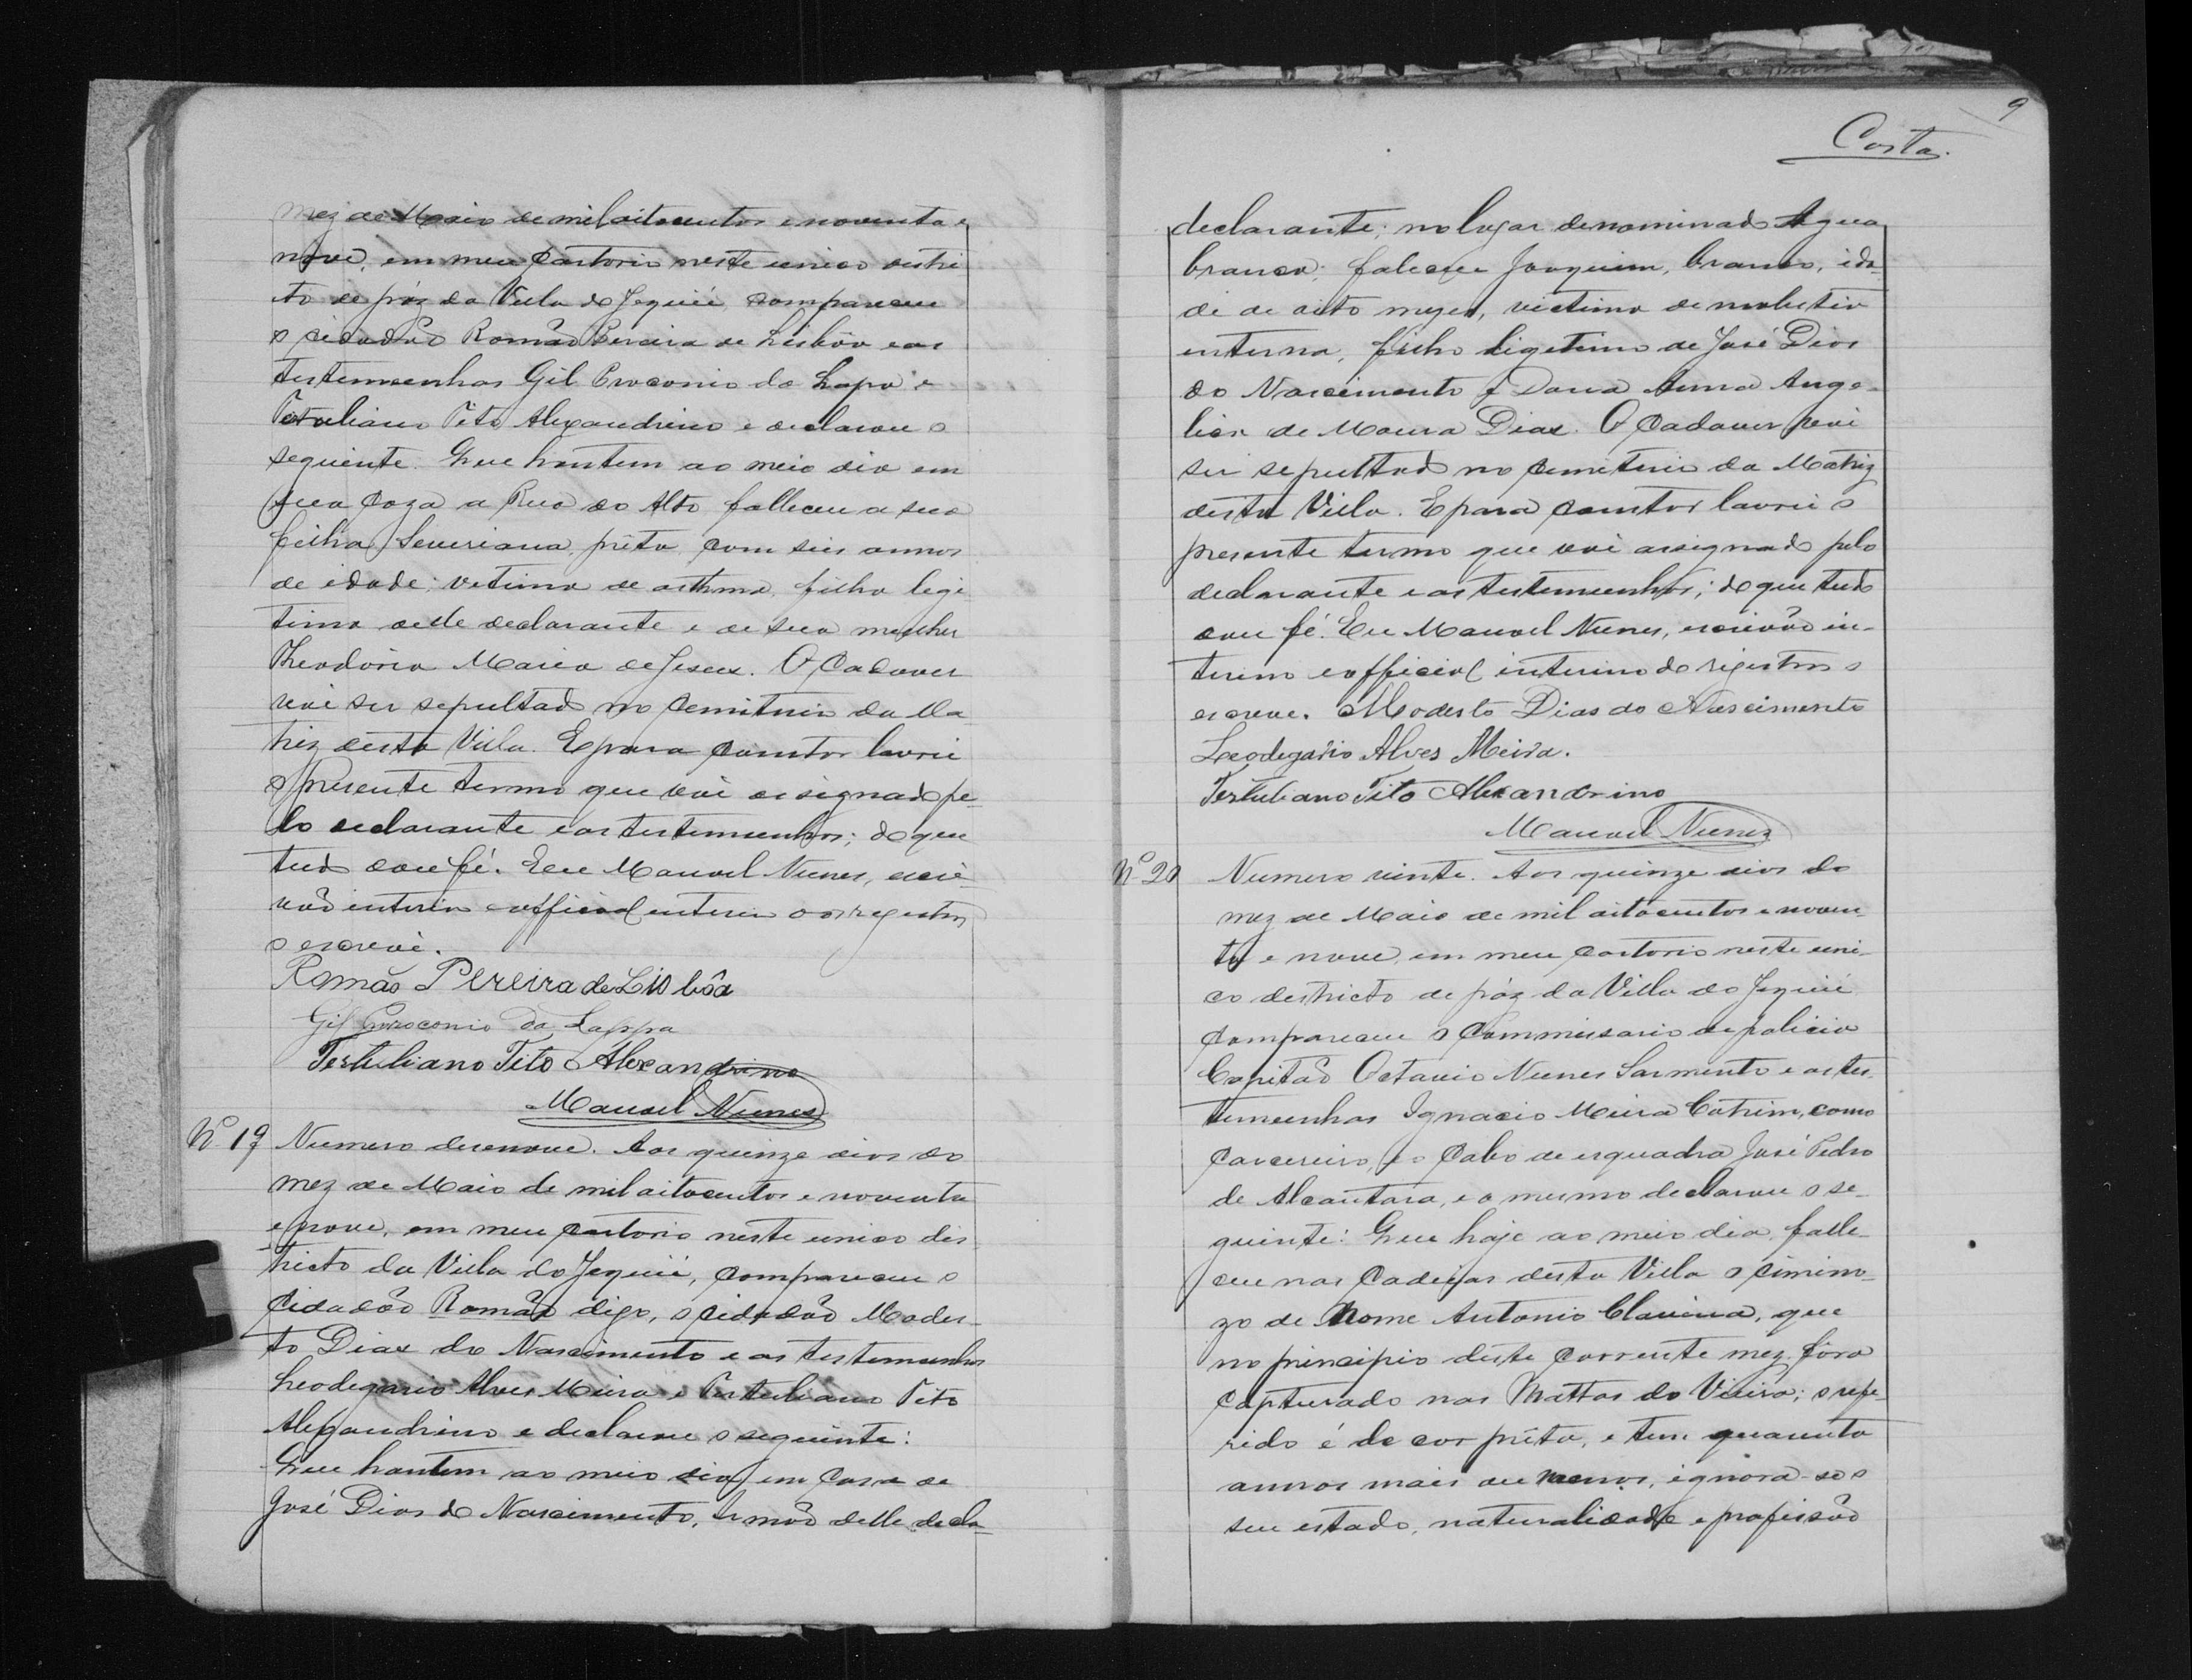 mez de Maio de mil oitocentos e noventa e
nove, em meu Cartorio neste unico distri
to de páz da Villa de Jequié compareceu
o cidadão Romão Pereira de Lisbôa e as
testemunhas Gil Proconio da Lapa e
Tertuliano Tito Alexandrino e declarou o
seguinte. Que hontem ao meio dia em
sua Caza a Rua do Alto falleceu a sua
filha Severiana, prêta, com seis annos
de idade; vetima de asthma, filha legi
tima delle declarante e de sua mulher
Theodória Maria de Jesus. O Cadaver
vai ser sepultado no Cemiterio da Ma
triz desta Villa. E para Constar lavrei
o presente termo que vai assignado pe-
lo declarante e as testemunhas; do que
tudo dou fé. Eu Manoel Nunes, escri-
vão interin e official interin dos registros
o escrevi.
Romão Pereira de Lisbôa
Gil Proroconio da Lappa
Tertuliano Tito Alexandrino
Manoel Nunes
Nº 19 Numero desenove. Aos quinze dias do
mez de Maio de mil oitocentos e noventa
e nove, em meu Cartorio neste unico dis-
tricto da Villa do Jequié, compareceu o
Cidadão Romão digo, o cidadão Modes-
to Dias do Nascimento e as testemunhas
Leodegario Alves Meira e Tertuliano Tito
Alexandrino e declarou o seguinte:
Que hontem ao meio dia em Casa de
José Dias do Nascimento, Irmão delle decla-
9
Costa.
declarante; no lugar denominado Agua
branca; faleceu Joaquim, branco, ida-
de de oito mezes, victima de molestia
interna, filho ligetimo de José Dias
do Nascimento e Dona Anna Ange-
lica de Moura Dias. O Cadaver vai
ser sepultado no Cemiterio da Matriz
desta Villa. E para Constar lavrei o
presente termo que vai assignado pelo
declarante e as testemunhas; do que tudo
dou fé. Eu Manoel Nunes, escrivão in-
terino e official interino do registros o
escreve. Modesto Dias do Nascimento
Leodegario Alves Meira.
Tertuliano Tito Alexandrino
Manoel Nunes
Nº 20 Numero vinte. Aos quinze dias do
mez de Maio de mil oitocentos e noven-
ta e nove, em meu Cartorio neste uni-
co destricto de páz da Villa do Jequié
Compareceu o Commissario de policia
Capitão Octavio Nunes Sarmento e as tes-
temunhas Ignacio Meira Cotrim, como
Carcereiro, e o Cabo de esquadra José Pedro
de Alcantara, e o mesmo declarou o se-
guinte: Que hoje ao meio dia, falle-
ceu nas Cadeias desta Villa o crimino-
zo de Nome Antonio Clavina, que
no principio deste Corrente mez fora
Capturado nas Mattas do Vieira; o refe-
rido é de cor prêta, e tem quarenta
annos mais ou menos, ignora-se o
seu estado, naturalidade e profissão